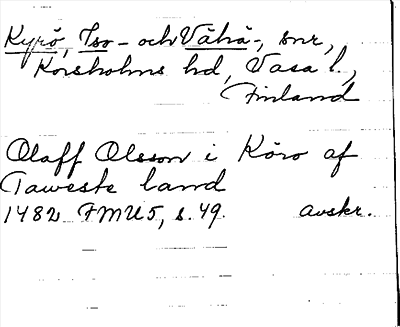 Kyrö, Iso- och Vähä-, snr,
Korsholms hd, Vasa l.,
Finland
Olaff Olsson i Köro af
Taweste land
1482 FMU 5, s. 49. avskr.